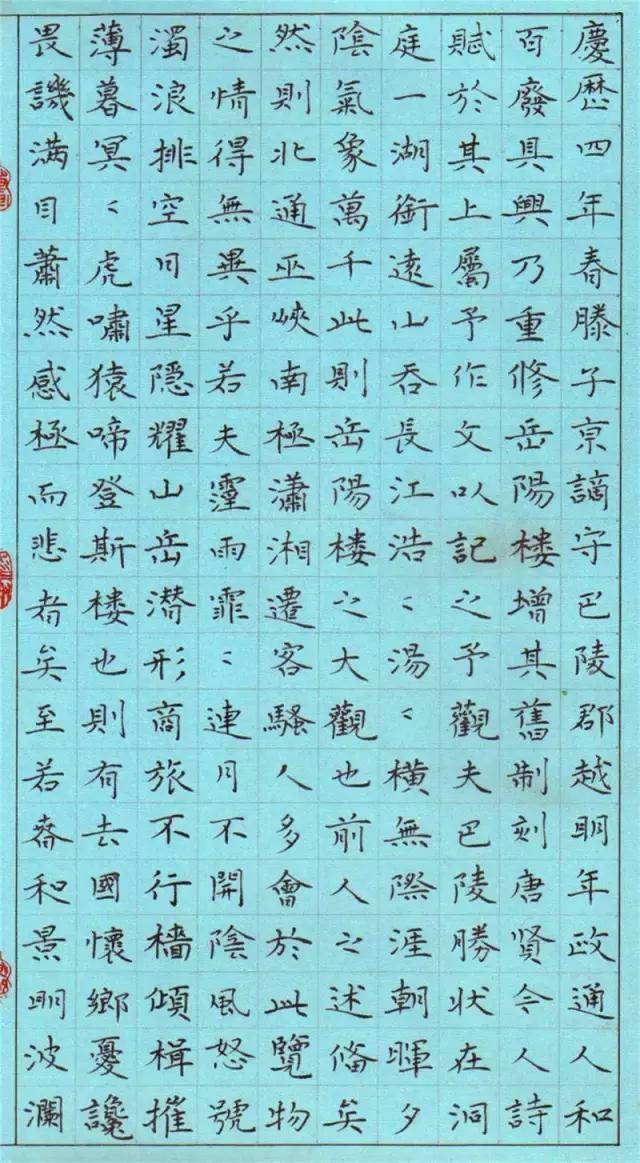 慶曆四年春滕子京謫守巴陵郡越明年政通人和
百廢具興乃重修岳陽楼增其舊制刻唐賢今人詩
賦於其上屬予作文以記之予觀夫巴陵勝狀在洞
庭一湖銜遠山吞長江浩〻湯〻橫無際涯朝暉夕
陰氣象萬千此則岳陽楼之大觀也前人之述備矣
然則北通巫峽南極瀟湘遷客騷人多會於此覽物
之情得無異乎若夫霪雨霏〻連月不開陰風怒號
濁浪排空日星隱耀山岳潛形商旅不行檣傾楫摧
薄暮冥〻虎嘯猿啼登斯楼也則有去國懷鄉憂讒
畏譏滿目蕭然感極而悲者矣至若春和景明波瀾